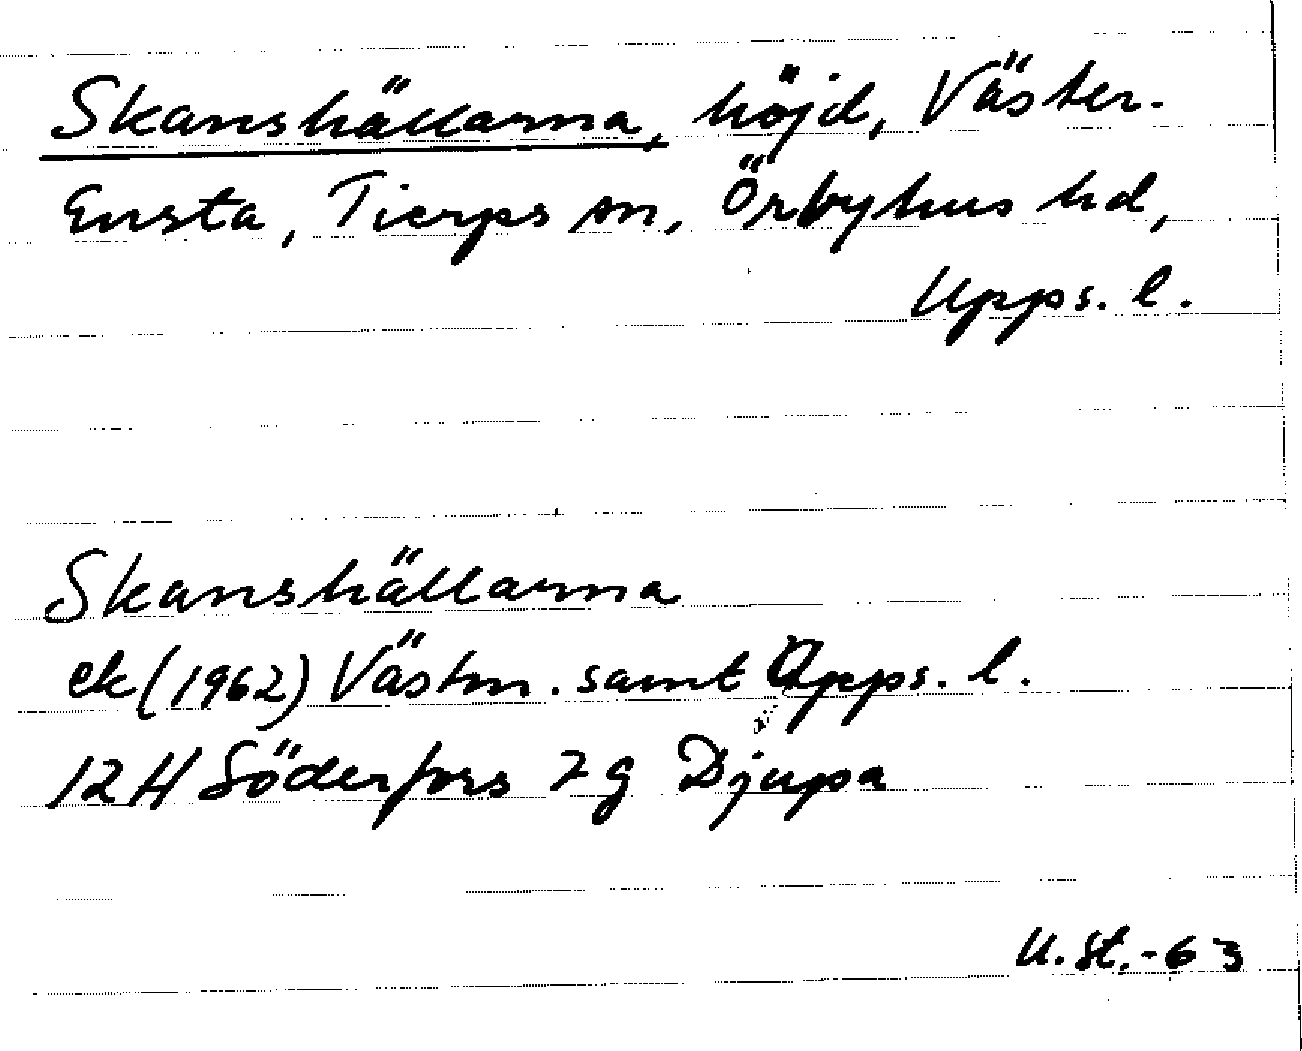 Skanshällarna, höjd, Väster-
Ensta, Tierps sn, Örbyhus hd,
Upps. l.
Skanshällarna
ek (1962) Västm. samt Upps. l.
12 H Söderfors 7 g Djupa
U. St. -63